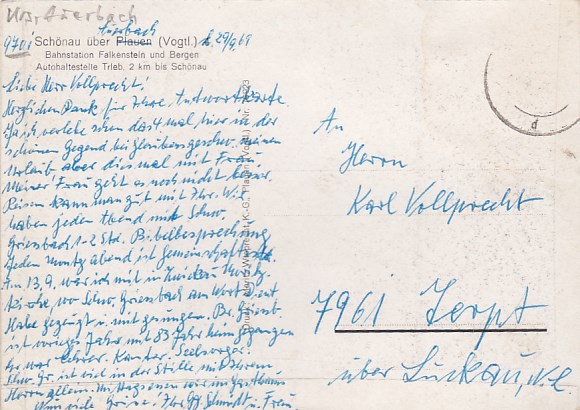 Krs. Auerbach
Auerbach
9701 Schönau über Plauen (Vogtl.) d. 29/9.69
Bahnstation Falkenstein und Bergen
Autohaltestelle Trieb, 2 km bis Schönau
Liebe Herr Vollprecht!
Herzlichen Dank für Ihre Antwortkarte
Ja ich verlebe schon das 4. mal hier in der
schönen Gegend bei Glaubensgeschw. meinen
Urlaub aber dies mal mit Frau.
Meiner Frau geht es noch nicht besser.
Reisen kann man gut mit Ihr. Wir
haben jeden Abend mit Schw.
Griesbach 1-2 Std. Bibelbesprechung
Jeden Montag abend ist Gemeinschaftsstd.
Am 13.9. war ich mit in
kirche, wo Schw. Griesbach am Wort dient
Habe gezeugt u. mit gesungen. Br. Griesb.
ist voriges Jahr mit 83 Jahr heim gegangen
Er war Lehrer. Kantor. Seelsorger.
Schw. Gr. ist viel in der Stille mit Ihrem
Herrn allein. Mittagessen wir im
Nun viele Grüße! Ihr Schmidt u. Frau
An
Herrn
Karl Vollprecht
7961 Terpt
über Luckau, N.L.
d